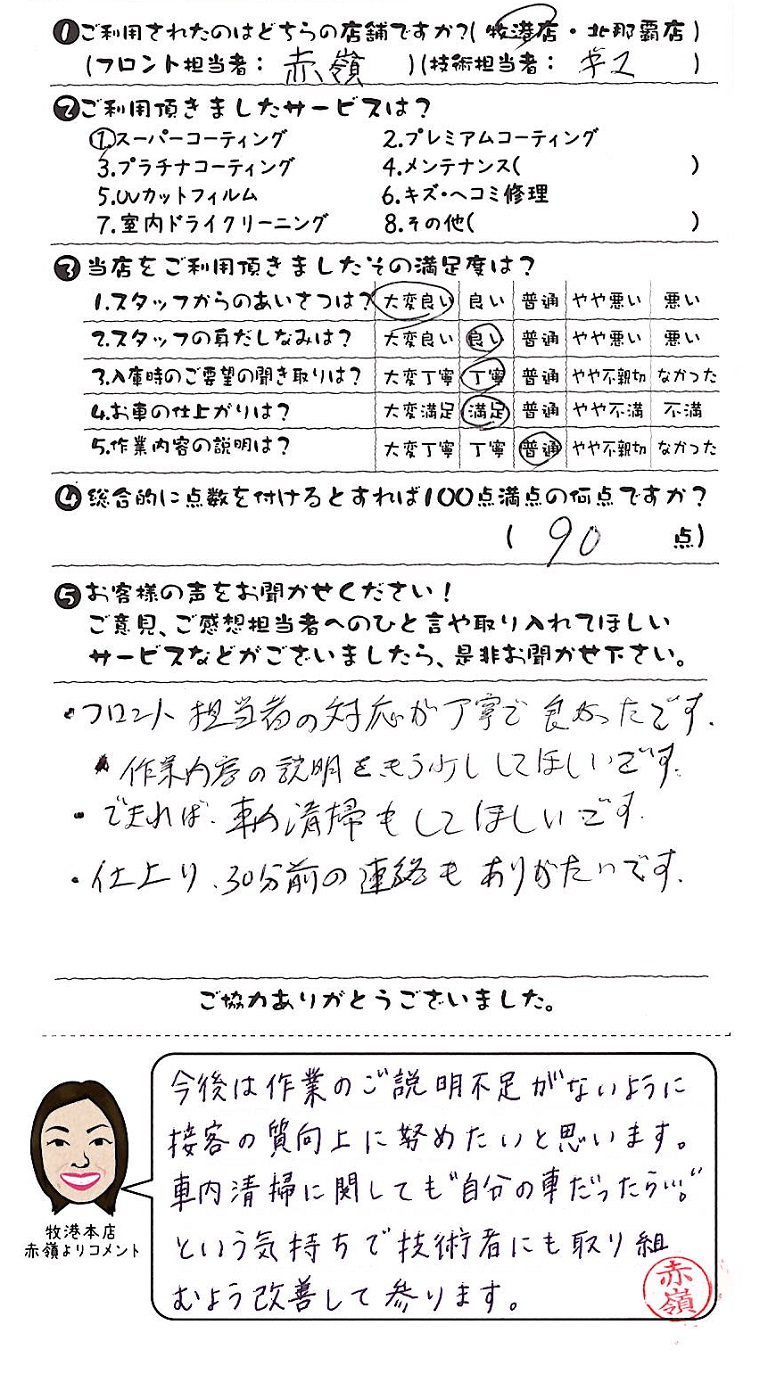 ❶ご利用されたのはどちらの店舗ですか?(牧港店・北那覇店)
(フロント担当者: 赤嶺 )(技術担当者: )
❷ご利用頂きましたサービスは?
1.スーパーコーティング 2.プレミアムコーティング
3.プラチナコーティング 4.メンテナンス( )
5.UVカットフィルム 6.キズ・ヘコミ修理
7.室内ドライクリーニング 8.その他( )
❸当店をご利用頂きましたその満足度は?
1.スタッフからのあいさつは? 大変良い 良い 普通 やや悪い 悪い
2.スタッフの身だしなみは? 大変良い 良い 普通 やや悪い 悪い
3.入庫時のご要望の聞き取りは? 大変丁寧 丁寧 普通 やや不親切 なかった
4.お車の仕上がりは? 大変満足 満足 普通 やや不満 不満
5.作業内容の説明は? 大変丁寧 丁寧 普通 やや不親切 なかった
❹総合的に点数を付けるとすれば100点満点の何点ですか?
( 90 点)
❺お客様の声をお聞かせください!
ご意見、ご感想担当者へのひと言や取り入れてほしい
サービスなどがございましたら、是非お聞かせ下さい。
・フロント担当者の対応が丁寧で良かったです.
作業内容の説明をもう少ししてほしいです.
・できれば.車内清掃もしてほしいです.
・仕上り.30分前の連絡もありがたいです.
ご協力ありがとうございました。
今後は作業のご説明不足がないように
接客の質向上に努めたいと思います。
車内清掃に関しても"自分の車だったら…。"
という気持ちで技術者にも取り組
むよう改善して参ります。
牧港本店
赤嶺よりコメント
赤嶺